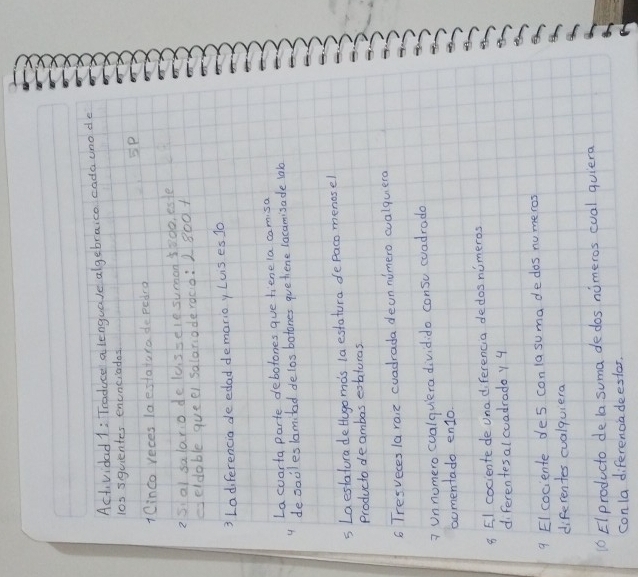 Actividad 1: Traduce a lenguaje algebraico cada uno de
los siguientes enunciados
1 Cinco veces la estatura de Pedro 5P
2 Si al salario de luis se le suman $800, este
el doble que el salario de
3 La diferencia de edad de maria y Luis es 10
4 La cuarta parte de botones que tiene la camisa
de saúl es la mitad de los botones que tiene la camisa de
5 La estatura de Hugo más la estatura de Paco menos el
Producto de ambas estaturas
6 Tres veces la raiz cuadrada de un número cualquiera
7 Un numero cualquiera dividido con su cuadrado
aumentado en 10.
8 El cociente de una diferencia de dos números
diferentes al cuadrado y 4
9 El cociente de 5 con la suma de dos numeros
diferentes cualquiera
10 El producto de la suma de dos números cual quiera
con la diferencia de estos.